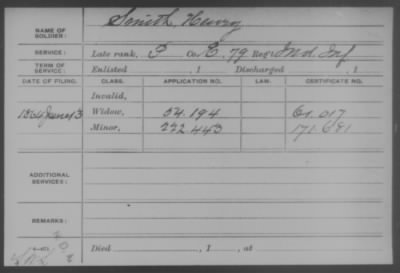 NAME OF SOLDIER: Smith Henry
SERVICE: Late rank, P Co. E. 79 Reg't Ind Inf
TERM OF SERVICE: Enlisted , 1 Discharged , 1
DATE OF FILING. CLASS. APPLICATION NO. LAW. CERTIFICATE NO.
Invalid,
1864 June 13 Widow, 54.194 61.017
Minor, 222 443 171.681
ADDITIONAL SERVICES:
REMARKS:
Died , 1 , at